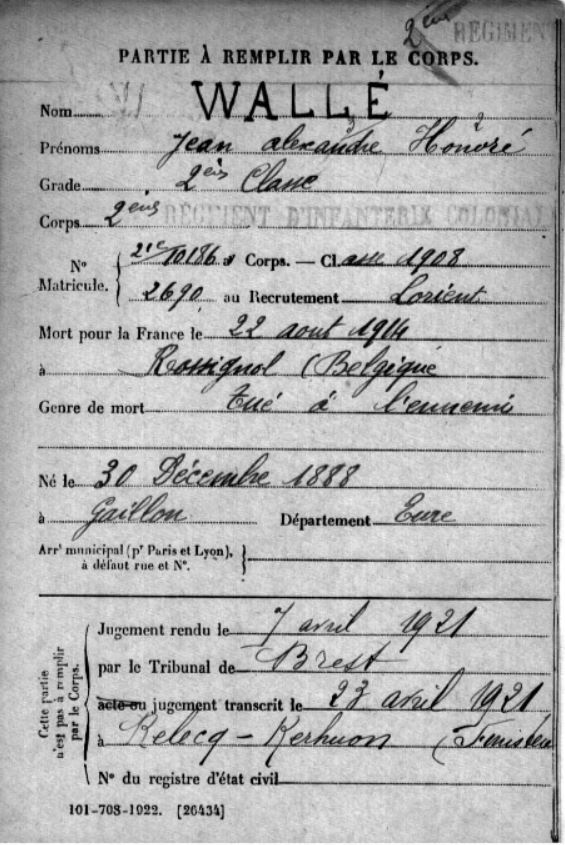 2ème RÉGIMENT
PARTIE À REMPLIR PAR LE CORPS.
Nom WALLÉ
Prénoms Jean Alexandre Honoré
Grade 2ème Classe
Corps 2ème RÉGIMENT D'INFANTERIE COLONIAL
N° Matricule. 10186 au Corps. — Cl. asse 1908
2690 au Recrutement Lorient
Mort pour la France le 22 aout 1914
à Rossignol (Belgique
Genre de mort Tué à l'ennemi
Né le 30 Décembre 1888
à Gaillon Département Eure
Arrt municipal (pr Paris et Lyon),
à défaut rue et N°.
Cette partie
n'est pas à remplir
par le Corps.
Jugement rendu le 7 avril 1921
par le Tribunal de Brest
acte ou jugement transcrit le 23 avril 1921
à Relecq-Kerhuon (Finistère
N° du registre d'état civil
101-708-1922. [26434]